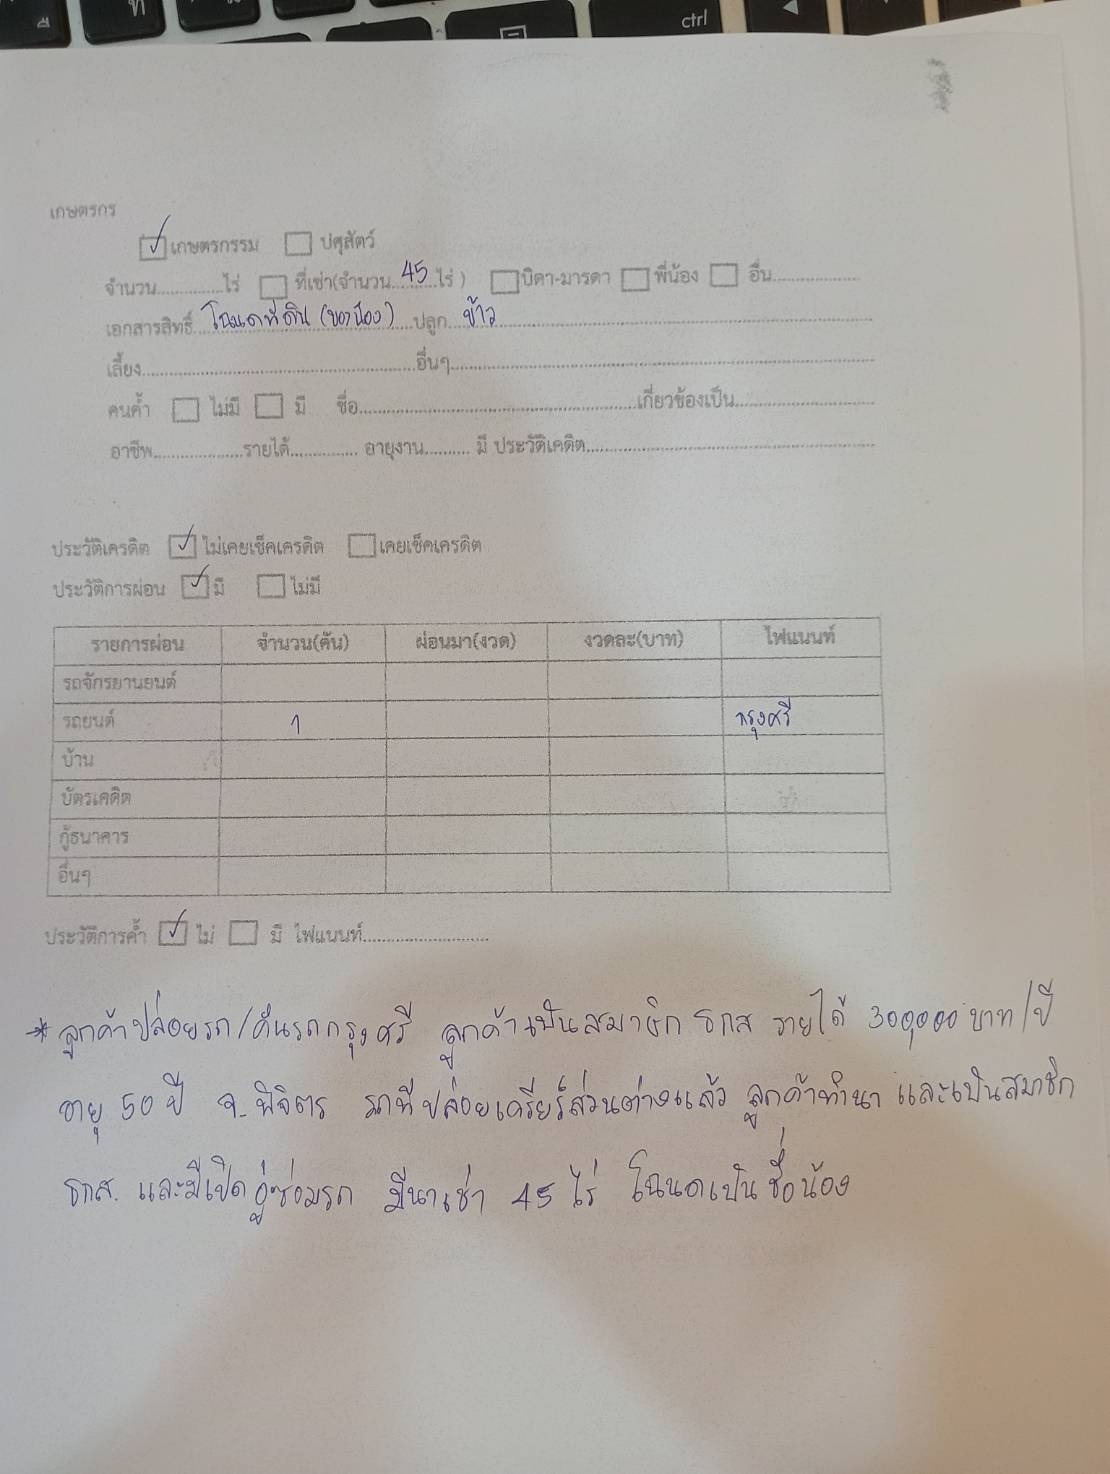 ctrl
เกษตรกร
เกษตรกรรม ปศุสัตว์
จำนวน..............ไร่ ที่เช่า(จำนวน...45...ไร่ ) บิดา-มารดา พี่น้อง อื่น..................
เอกสารสิทธิ์...โฉนดที่ดิน (ของน้อง)....ปลูก...ข้าว..................
เลี้ยง..................อื่นๆ..................
คนค้ำ ไม่มี มี ชื่อ..................เกี่ยวข้องเป็น..................
อาชีพ..................รายได้.............. อายุงาน.......... มี ประวัติเคดิต..................
ประวัติเครดิต ไม่เคยเช็คเครดิต เคยเช็คเครดิต
ประวัติการผ่อน มี ไม่มี
รายการผ่อน จำนวน(คัน) ผ่อนมา(งวด) งวดละ(บาท) ไฟแนนท์
รถจักรยานยนต์
รถยนต์ 1 กรุงศรี
บ้าน
บัตรเคดิต
กู้ธนาคาร
อื่นๆ
ประวัติการค้ำ ไม่ มี ไฟแนนท์..................
* ลูกค้าปล่อยรถ/คืนรถกรุงศรี ลูกค้าเป็นสมาชิก ธกส รายได้ 300,000 บาท/ปี
อายุ 50 ปี จ. พิจิตร รถที่ปล่อยเครียร์ส่วนต่างแล้ว ลูกค้าทำนา และเป็นสมาชิก
ธกส. และมีเปิดอู่ซ่อมรถ มีนาเช่า 45 ไร่ โฉนดเป็นชื่อน้อง